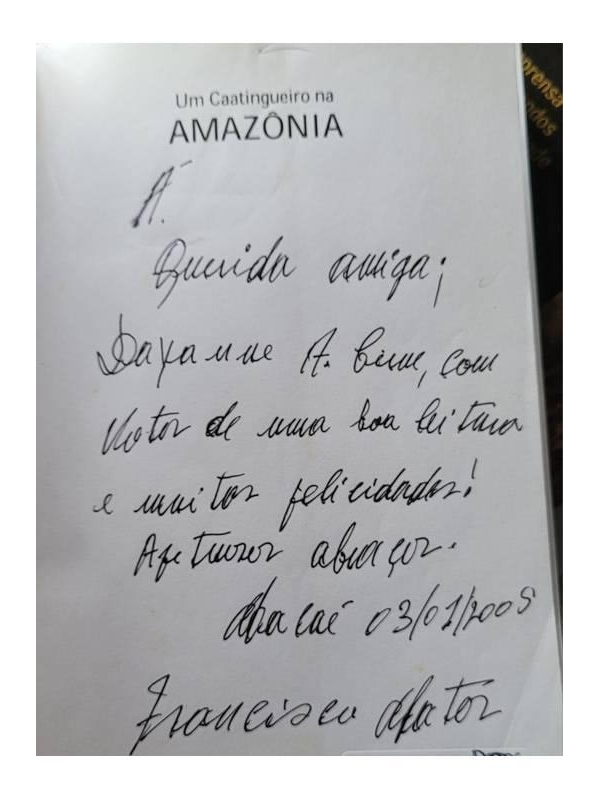 Um Caatingueiro na
AMAZÔNIA
Á
Querida amiga;
Dayanne A. com
votos de uma boa leitura
e muitos felicidades!
Afetuosos abraços.
03/01/2005
Francisco
prensa